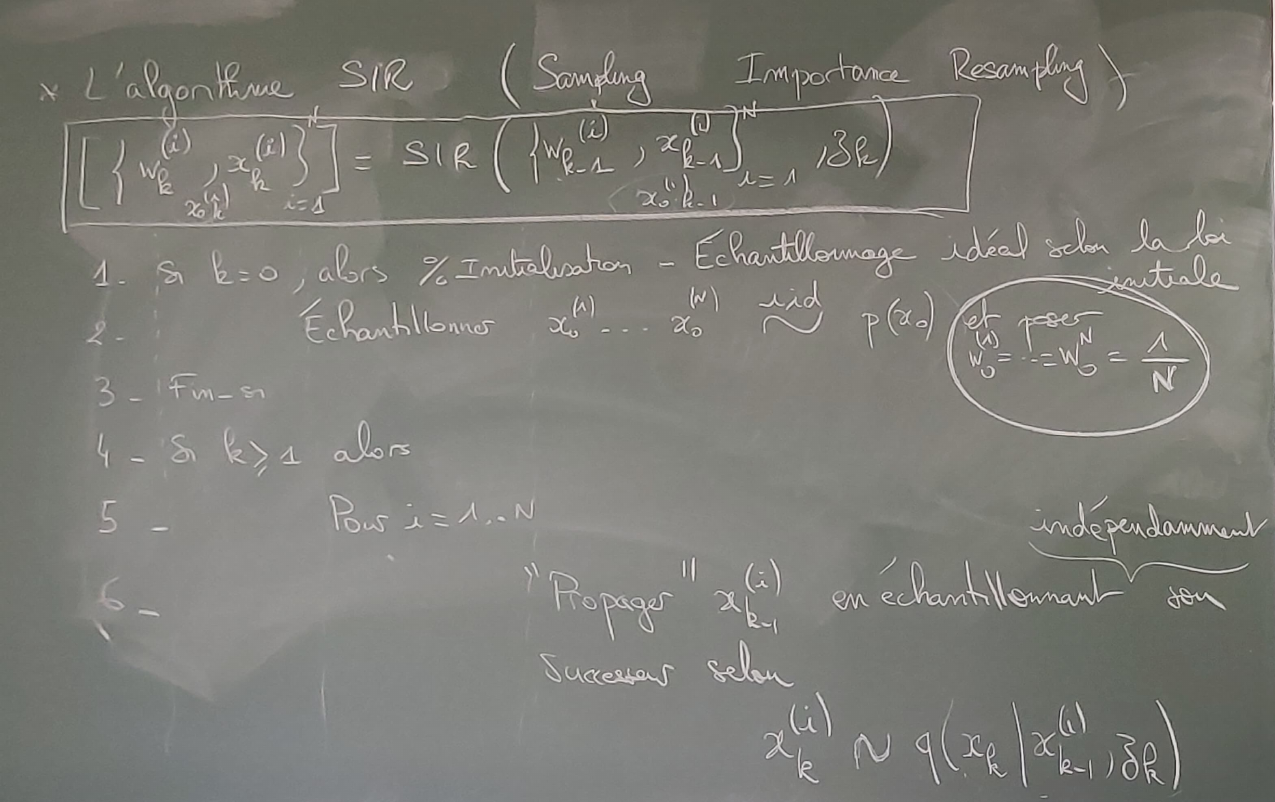 × L'algorithme SIR (Sampling Importance Resampling)
[{w_k^(i), x_k^(i)}_{i=1}^N] = SIR({w_{k-1}^(i), x_{k-1}^(i)}_{i=1}^N, z_k)
x_{0:k}^(i) x_{0:k-1}^(i)
1- Si k=0, alors % Initialisation - Échantillonnage idéal selon la loi initiale
2- Échantillonner x_0^(1) ... x_0^(N) iid ~ p(x_0) et poser w_0^(1) = ... = w_0^N = 1/N
3- Fin-si
4- Si k ≥ 1 alors
5- Pour i = 1..N
indépendamment
6- "Propager" x_{k-1}^(i) en échantillonnant son
successeur selon
x_k^(i) ~ q(x_k | x_{k-1}^(i), z_k)